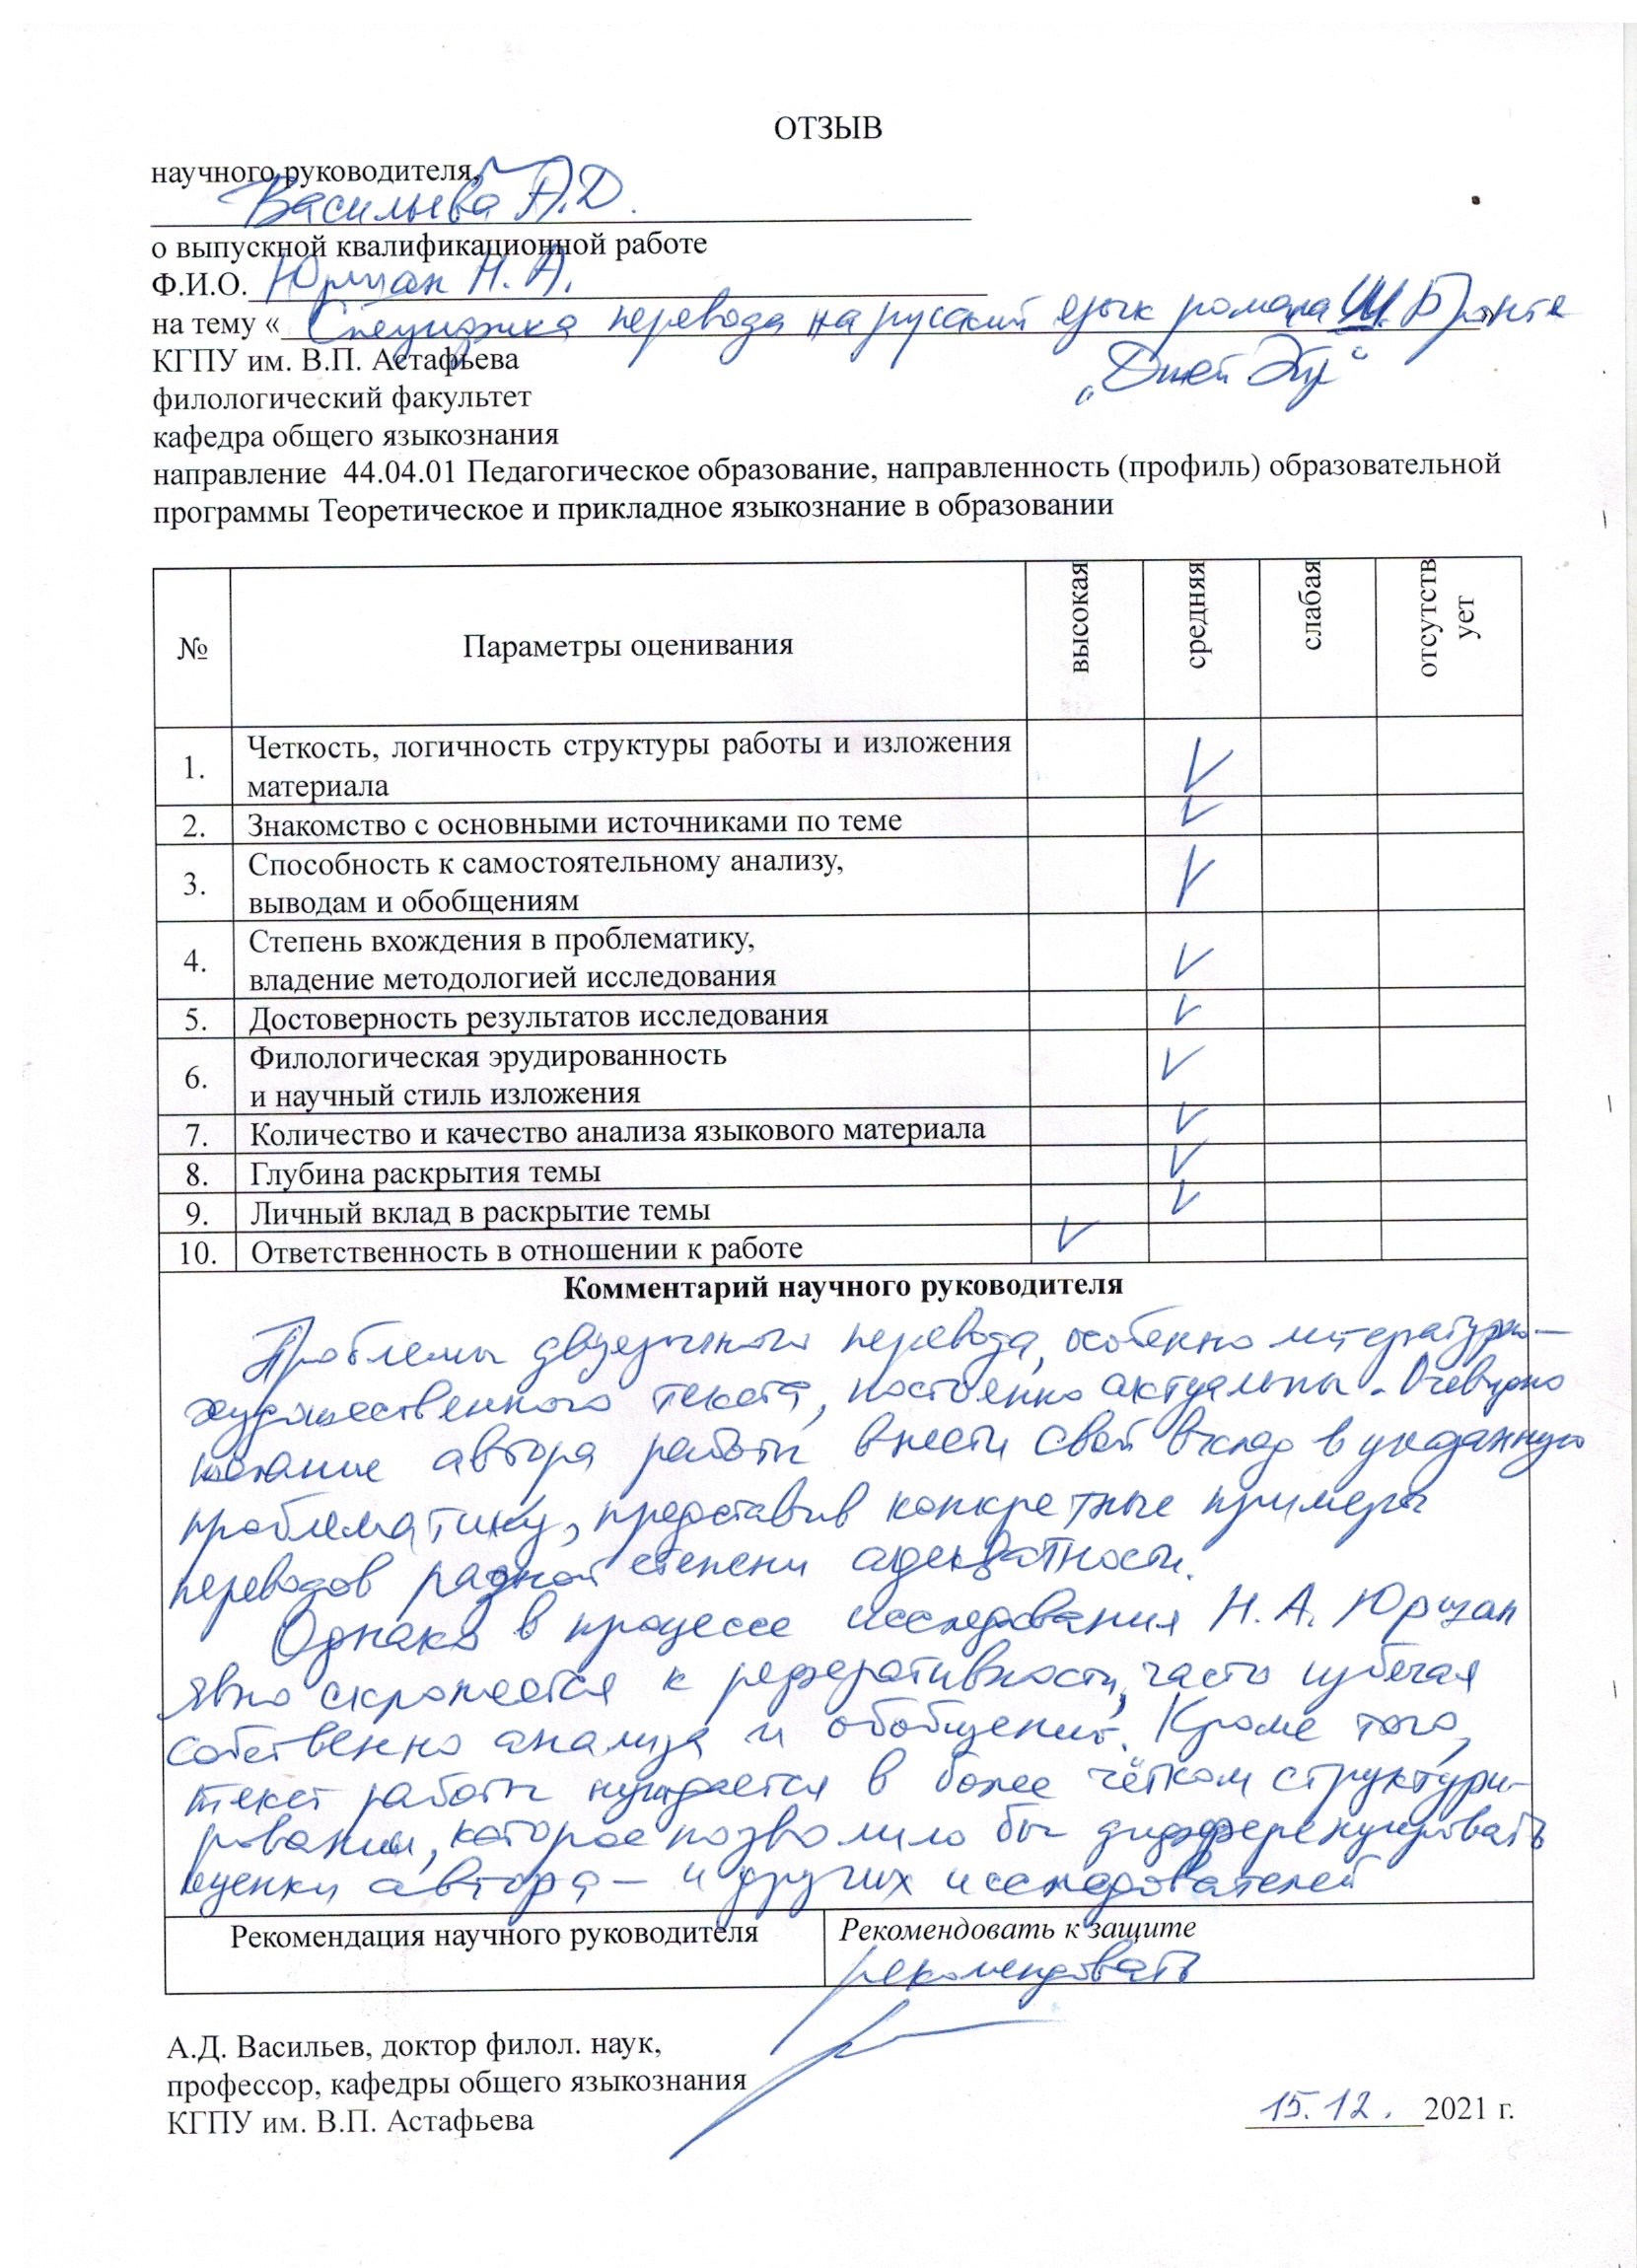 ОТЗЫВ
научного руководителя,
Васильева А.Д.
о выпускной квалификационной работе
Ф.И.О. Юрман Н. А.
на тему « Специфика перевода на русский язык романа Ш. Бронте »
„Джен Эйр“
КГПУ им. В.П. Астафьева
филологический факультет
кафедра общего языкознания
направление 44.04.01 Педагогическое образование, направленность (профиль) образовательной
программы Теоретическое и прикладное языкознание в образовании
№ Параметры оценивания высокая средняя слабая отсутств
ует
1. Четкость, логичность структуры работы и изложения
материала V
2. Знакомство с основными источниками по теме V
3. Способность к самостоятельному анализу,
выводам и обобщениям V
4. Степень вхождения в проблематику,
владение методологией исследования V
5. Достоверность результатов исследования V
6. Филологическая эрудированность
и научный стиль изложения V
7. Количество и качество анализа языкового материала V
8. Глубина раскрытия темы V
9. Личный вклад в раскрытие темы V
10. Ответственность в отношении к работе V
Комментарий научного руководителя
Проблемы двуязычного перевода, особенно литературно-
художественного текста, постоянно актуальны. Очевидно
желание автора работы внести свой вклад в указанную
проблематику, представив конкретные примеры
переводов разной степени адекватности.
Однако в процессе исследования Н. А. Юрман
явно склоняется к реферативности, часто избегая
собственно анализа и обобщений. Кроме того,
текст работы нуждается в более чётком структури-
ровании, которое позволило бы дифференцировать
оценки автора – и других исследователей
Рекомендация научного руководителя
Рекомендовать к защите
рекомендовать
А.Д. Васильев, доктор филол. наук,
профессор, кафедры общего языкознания
КГПУ им. В.П. Астафьева
15.12. 2021 г.